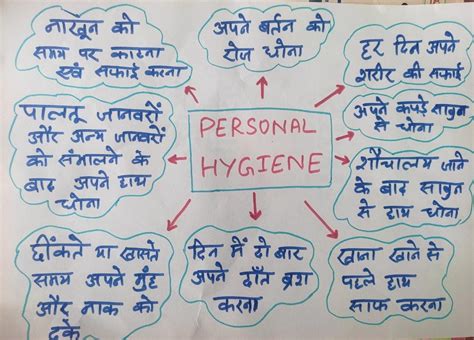 नाखून को
समय पर काटना
एवं सफाई करना
अपने बर्तन को
रोज धोना
हर दिन अपने
शरीर की सफाई
पालतू जानवरों
और अन्य जानवरों
को संभालने के
बाद अपने हाथ
धोना
PERSONAL
HYGIENE
अपने कपड़े साबुन
से धोना
शौचालय जाने
के बाद साबुन
से हाथ धोना
छींकते या खासते
समय अपने मुँह
और नाक को
ढकें
दिन में दो बार
अपने दाँत ब्रश
करना
खाना खाने से
पहले हाथ
साफ करना